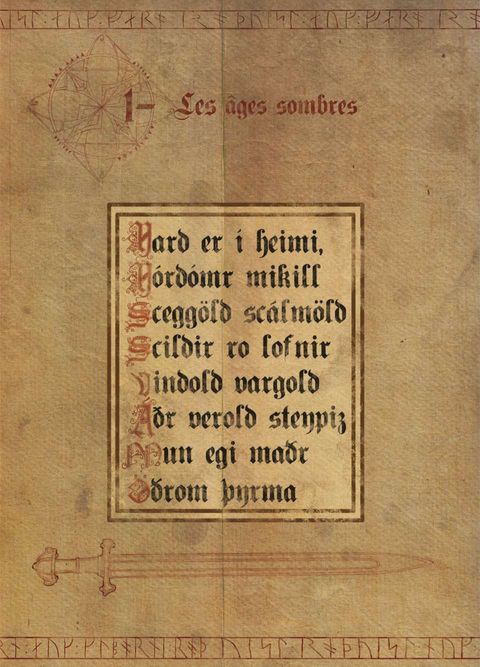 1- Les âges sombres
Hard er í heimi,
Hórdómr mikill
Sceggöld scálmöld
Scildir ro lofnir
Vindold vargold
Aðr verold steypiz
Mun egi maðr
Oðrom þyrma